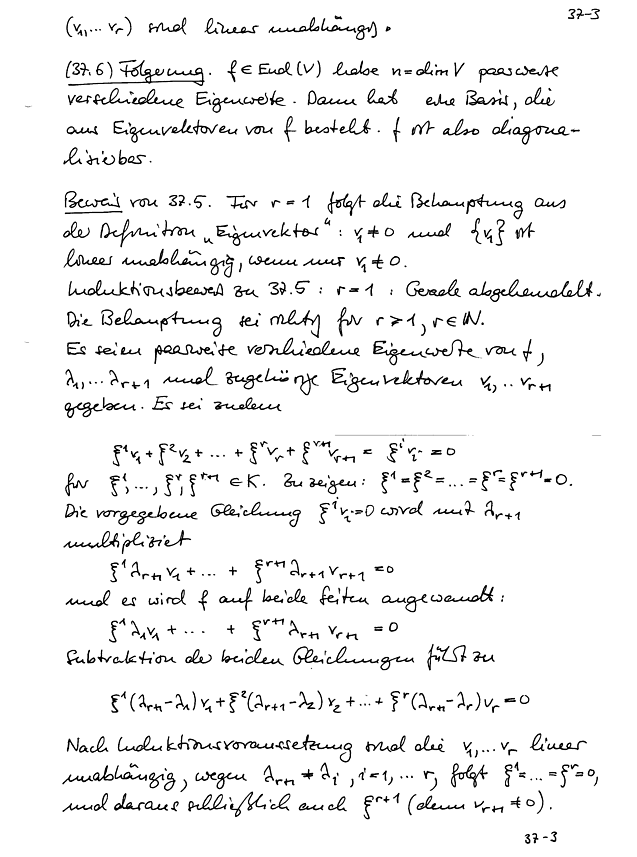 37-3
(v₁,... vᵣ) sind linear unabhängig.
(37.6) Folgerung. f ∈ End(V) habe n = dim V paarweise
verschiedene Eigenwerte. Dann hat eine Basis, die
aus Eigenvektoren von f besteht. f ist also diagona-
lisierbar.
Beweis von 37.5. Für r = 1 folgt die Behauptung aus
der Definition „Eigenvektor“: v₁ ≠ 0 und {v₁} ist
linear unabhängig, wenn nur v₁ ≠ 0.
Induktionsbeweis zu 37.5 : r = 1 : Gerade abgehandelt.
Die Behauptung sei richtig für r ≥ 1, r ∈ ℕ.
Es seien paarweise verschiedene Eigenwerte von f,
λ₁,... λᵣ₊₁ und zugehörige Eigenvektoren v₁, .. vᵣ₊₁
gegeben. Es sei zudem
ξ¹v₁ + ξ²v₂ + ... + ξʳvᵣ + ξʳ⁺¹vᵣ₊₁ = ξⁱvᵢ = 0
für ξ¹, ..., ξʳ, ξʳ⁺¹ ∈ K. Zu zeigen: ξ¹ = ξ² = ... = ξʳ = ξʳ⁺¹ = 0.
Die vorgegebene Gleichung ξⁱvᵢ = 0 wird mit λᵣ₊₁
multipliziert
ξ¹λᵣ₊₁v₁ + ... + ξʳ⁺¹λᵣ₊₁vᵣ₊₁ = 0
und es wird f auf beide Seiten angewandt:
ξ¹λ₁v₁ + ... + ξʳ⁺¹λᵣ₊₁vᵣ₊₁ = 0
Subtraktion der beiden Gleichungen führt zu
ξ¹(λᵣ₊₁-λ₁)v₁ + ξ²(λᵣ₊₁-λ₂)v₂ + ... + ξʳ(λᵣ₊₁-λᵣ)vᵣ = 0
Nach Induktionsvoraussetzung sind die v₁,... vᵣ linear
unabhängig, wegen λᵣ₊₁ ≠ λᵢ, i=1, ... r, folgt ξ¹ = ... = ξʳ = 0,
und daraus schließlich auch ξʳ⁺¹ (denn vᵣ₊₁ ≠ 0).
37-3